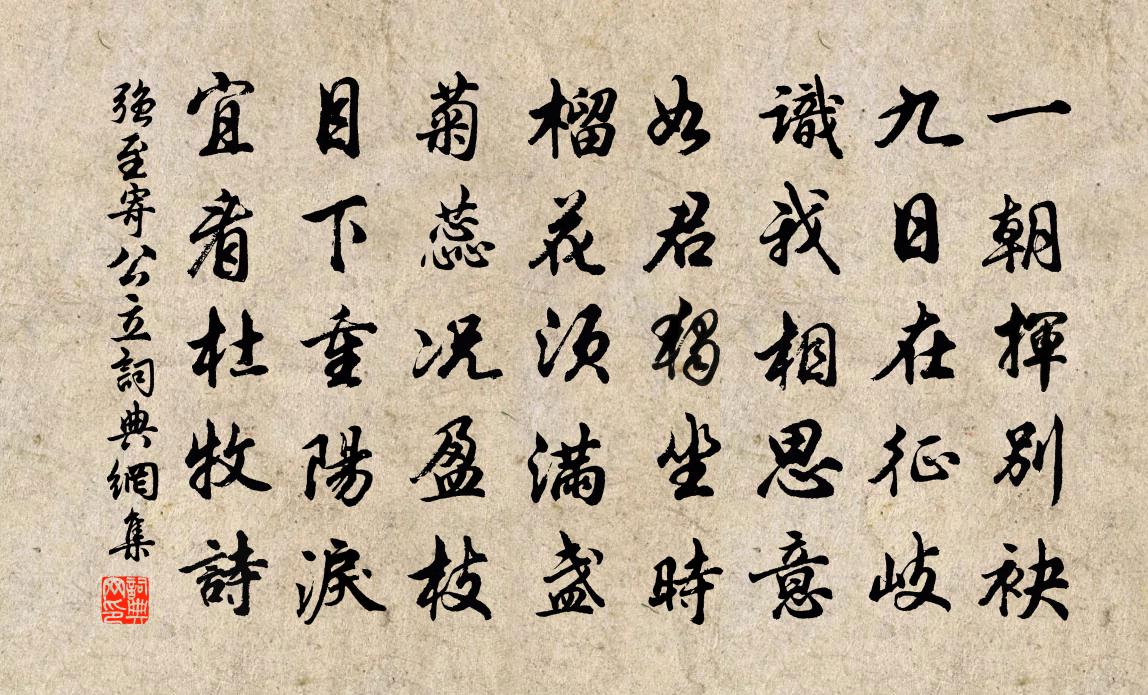 一朝揮別袂
九日在征岐
識我相思意
如君獨坐時
榴花須滿盏
菊蕊况盈枝
目下重陽淚
宜看杜牧詩
強至寄公立詞典網集
詞典网印